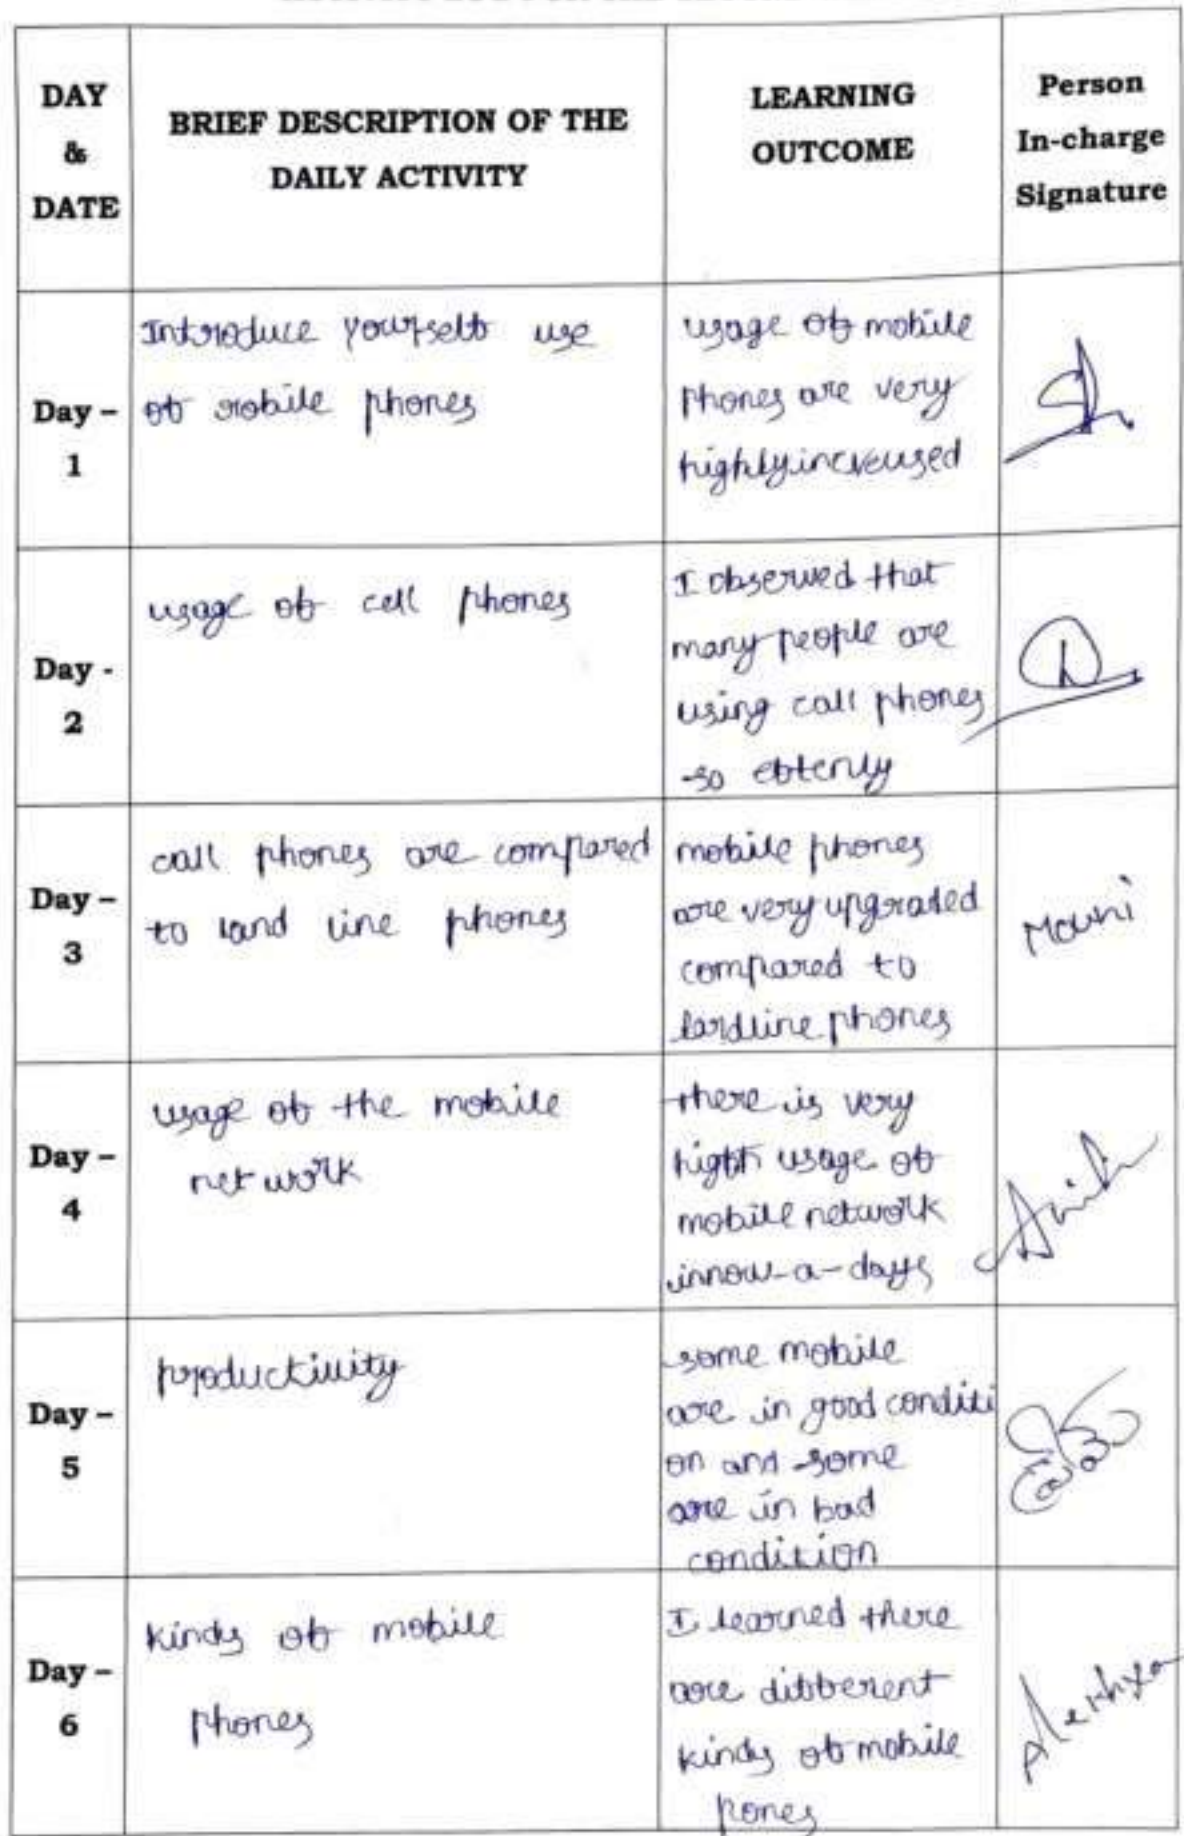 DAY
&
DATE
BRIEF DESCRIPTION OF THE
DAILY ACTIVITY
LEARNING
OUTCOME
Person
In-charge
Signature
Day –
1
Introduce yourself use
of mobile phones
usage of mobile
phones are very
highly increased
Day -
2
usage of cell phones
I observed that
many people are
using call phones
so oftenly
Day –
3
call phones are compared
to land line phones
mobile phones
are very upgraded
compared to
landline phones
Mouni
Day –
4
usage of the mobile
net work
there is very
high usage of
mobile network
in now-a-days
Day –
5
productivity
some mobile
are in good conditi
on and some
are in bad
condition
Day –
6
kinds of mobile
phones
I learned there
are different
kinds of mobile
pones